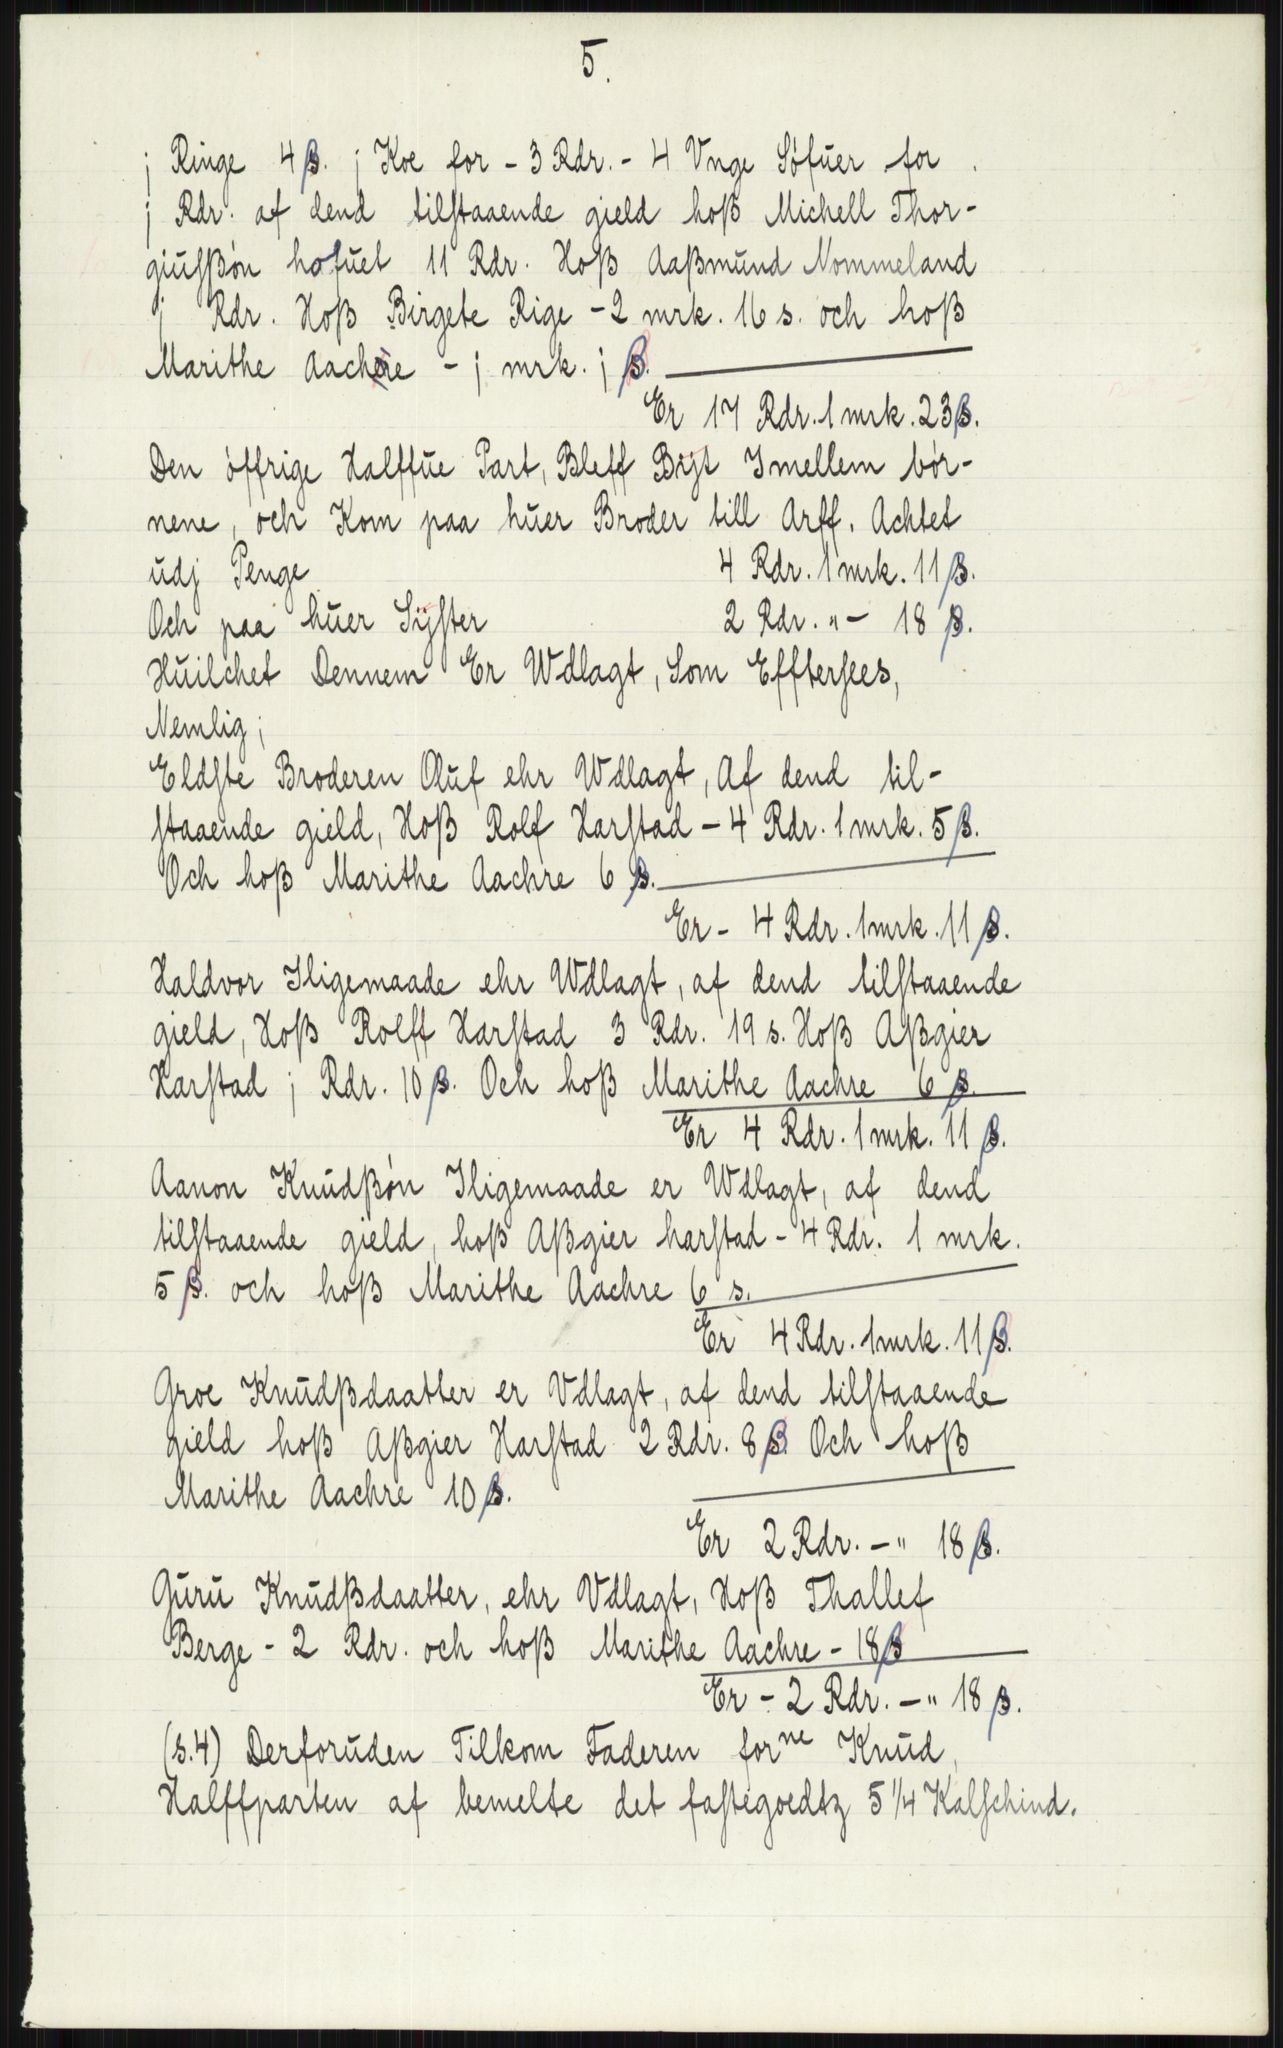 5.
j Ringe 4 β. j Koe for - 3 Rdr. - 4 Vnge Söfuer for
j Rdr. af dend tilstaaende gield hoß Michell Thor-
giulßön hofuet 11 Rdr. Hoß Aaßmund Nommeland
j Rdr. Hoß Birgete Rige - 2 mrk. 16 s. och hoß
Marithe Aachre - j mrk. j β.
Er 17 Rdr. 1 mrk. 23 β.
Den öffrige Halffue Part, Bleff Bÿt Imellem bör-
nene, och Kom paa huer Broder till Arff. Achtet
udj Penge 4 Rdr. 1 mrk. 11 β.
Och paa huer Sÿster 2 Rdr. " - 18 β.
Huilchet Dennem Er Wdlagt, Som Efftersees,
Nemlig;
Eldste Broderen Oluf ehr Wdlagt, Af dend til-
staaende gield, Hoß Rolf Harstad - 4 Rdr. 1 mrk. 5 β.
Och hoß Marithe Aachre 6 β.
Er - 4 Rdr. 1 mrk. 11 β.
Haldvor Iligemaade ehr Wdlagt, af dend tilstaaende
gield, Hoß Rolff Harstad 3 Rdr. 19 s. Hoß Aßgier
Harstad j Rdr. 10 β. Och hoß Marithe Aachre 6 β.
Er 4 Rdr. 1 mrk. 11 β.
Aanon Knudßön Iligemaade er Wdlagt, af dend
tilstaaende gield, hoß Aßgier harstad - 4 Rdr. 1 mrk.
5 β. och hoß Marithe Aachre 6 s.
Er 4 Rdr. 1 mrk. 11 β.
Groe Knudßdaatter er Vdlagt, af dend tilstaaende
gield hoß Aßgier Harstad 2 Rdr. 8 β. Och hoß
Marithe Aachre 10 β.
Er 2 Rdr. - " 18 β.
Guru Knudßdaatter, ehr Vdlagt, Hoß Thallef
Berge - 2 Rdr. och hoß Marithe Aachre - 18 β
Er - 2 Rdr. - " 18 β.
(s.4) Derforuden Tilkom Faderen forne Knud,
Halffparten af bemelte det fastegoedtz 5 1/4 Kalschind.